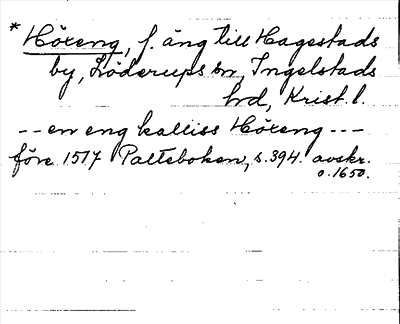 * Höxeng, f. äng till Hagestads
by, Löderups sn, Ingelstads
hd, Krist. l.
-- en eng kalliss Höxeng ---
före 1517 Palteboken, s. 394. avskr.
o. 1650.